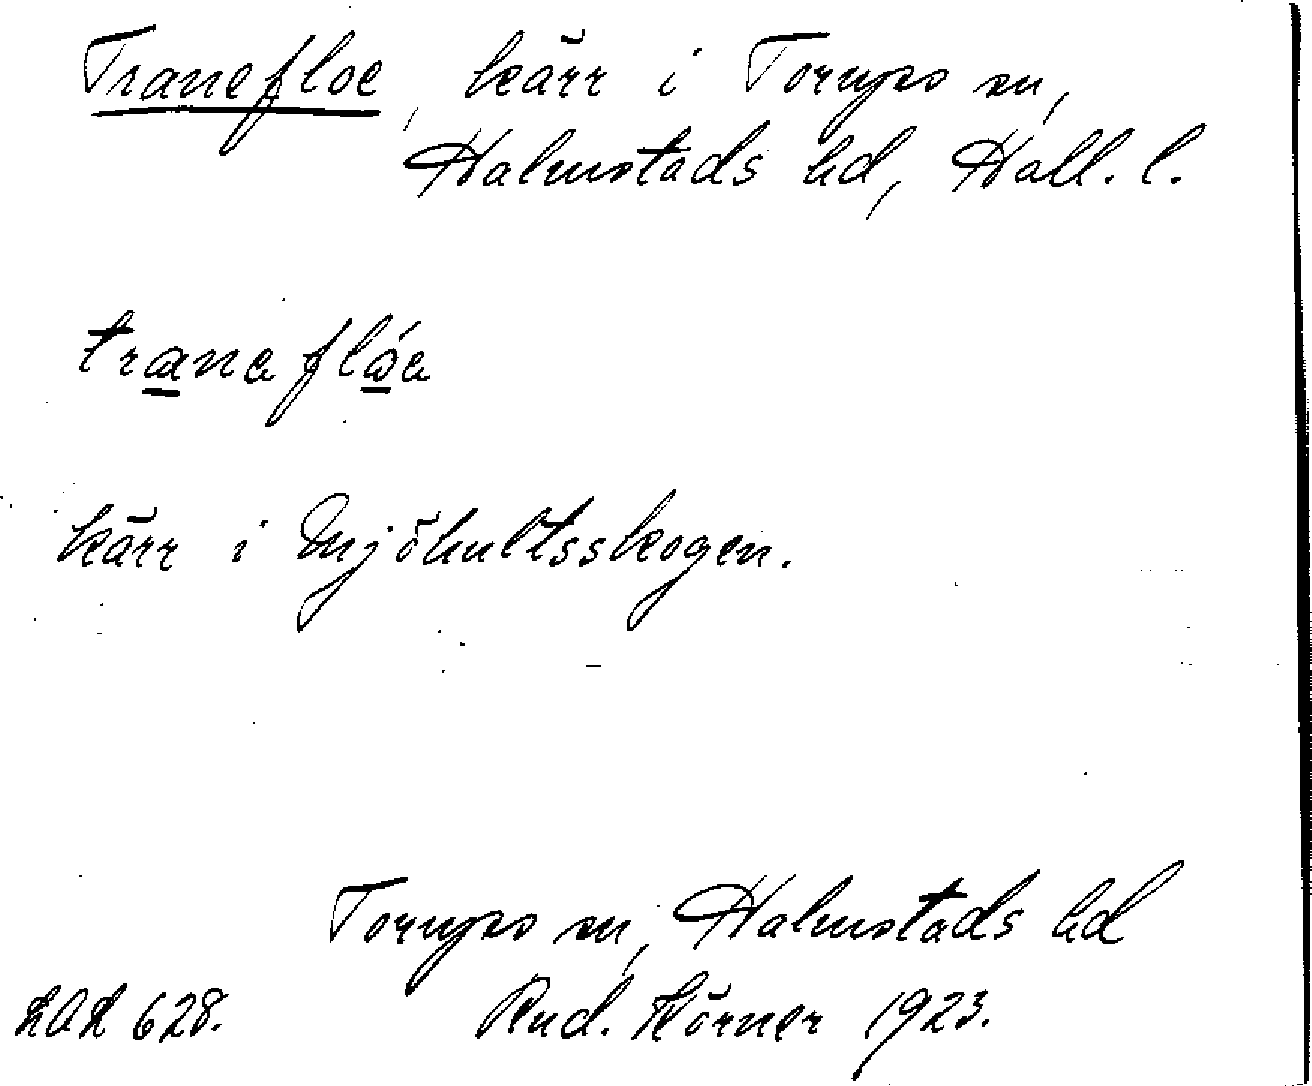 Tranefloe, kärr i Torups sn,
Halmstads hd, Hall. l.
tranaflóa
kärr i Mjöhultsskogen.
Torups sn, Halmstads hd
LAL 628. Rud. Körner 1923.